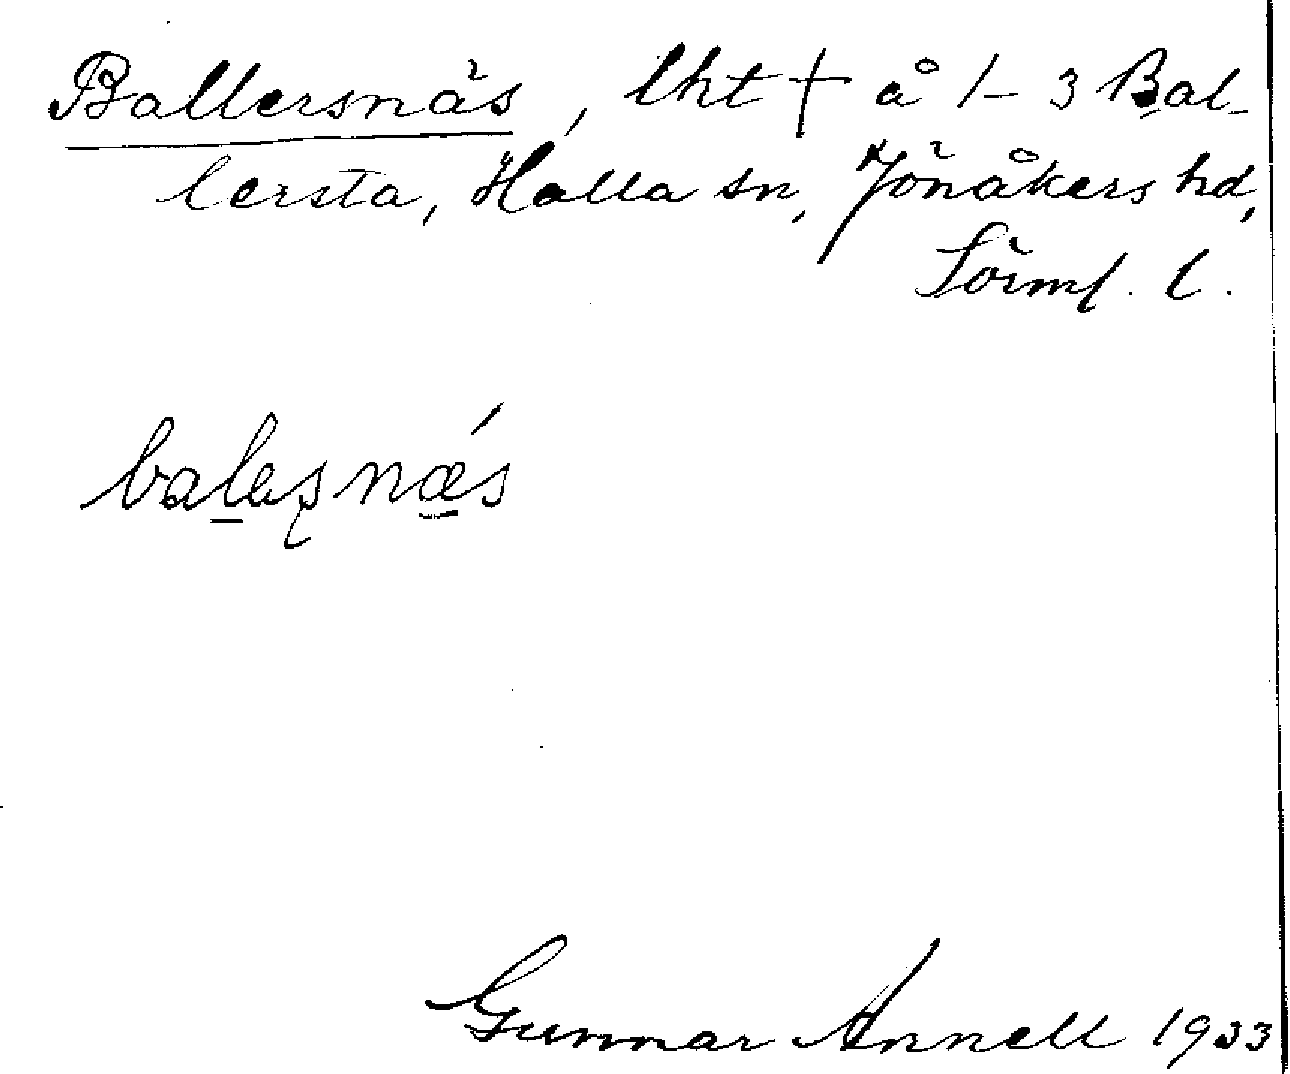 Ballersnäs, lht † å 1-3 Bal-
lersta, Halla sn, Jönåkers hd,
Sörml. l.
balesnǽs
Gunnar Annell 1933